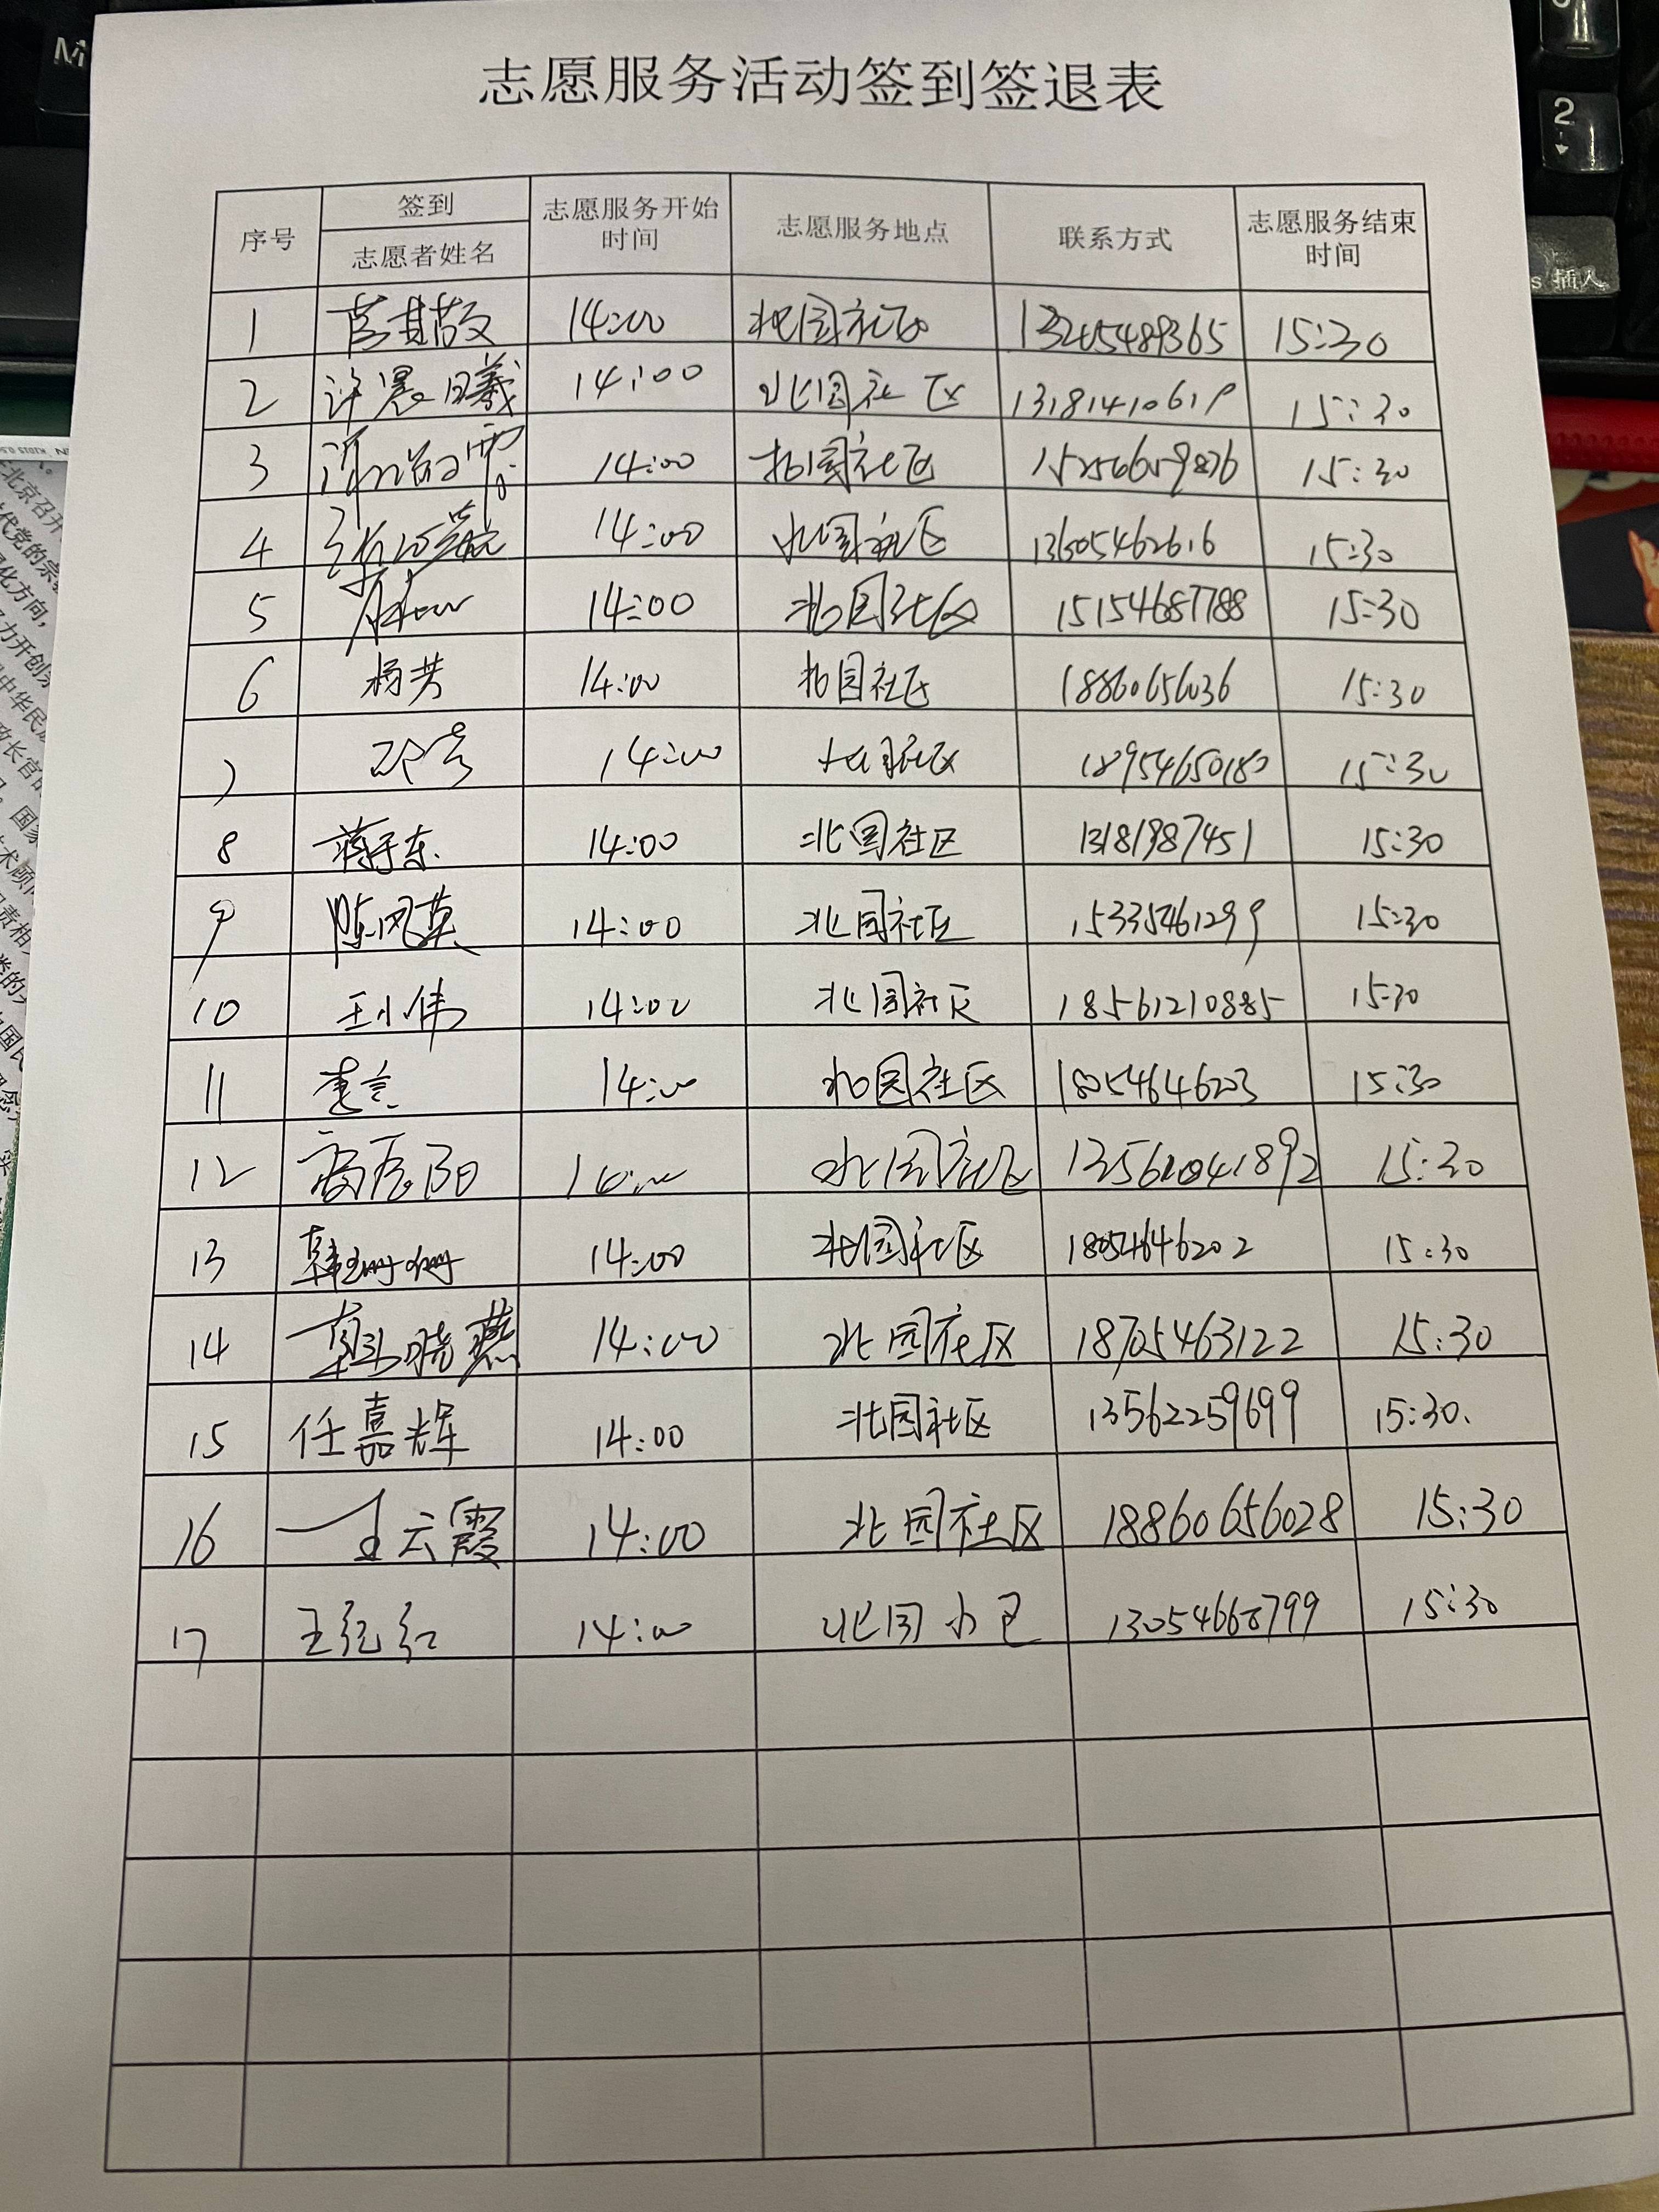 志愿服务活动签到签退表
序号 签到 志愿者姓名 志愿服务开始时间 志愿服务地点 联系方式 志愿服务结束时间
1 14:00 北园社区 15:30
2 许晨曦 14:00 北园社区 13181410619 15:30
3 14:00 北园社区 15256659876 15:30
4 14:00 北园社区 13605462616 15:30
5 14:00 北园社区 15154687788 15:30
6 杨芳 14:00 北园社区 18860656036 15:30
7 14:00 北园社区 18954650180 15:30
8 蒋于东 14:00 北园社区 13181987451 15:30
9 陈风英 14:00 北园社区 15335461299 15:30
10 王小伟 14:00 北园社区 18561210885 15:30
11 14:00 北园社区 18054646203 15:30
12 北园社区 15:30
13 韩珊珊 14:00 北园社区 18054646202 15:30
14 晓燕 14:00 北园社区 18705463122 15:30
15 任嘉辉 14:00 北园社区 13562259699 15:30.
16 王云霞 14:00 北园社区 18860656028 15:30
17 王纪红 14:00 北园 13054660799 15:30
2
插入